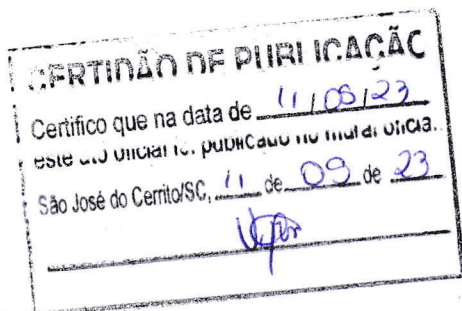 CERTIDÃO DE PUBLICAÇÃO
Certifico que na data de 11/09/23
este ato oficial foi publicado no mural oficial.
São José do Cerrito/SC, 11 de 09 de 23